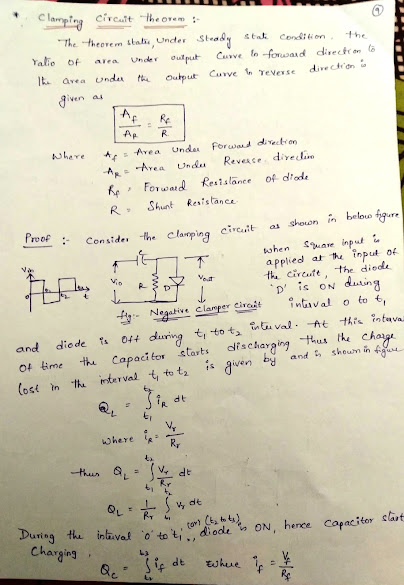 9
* Clamping Circuit Theorem :-
The theorem states, Under Steady State Condition. the
ratio of area under output Curve in forward direction to
the area under the output Curve in reverse direction is
given as
Af / AR = Rf / R
Where Af = Area Under Forward direction
AR = Area Under Reverse direction
Rf = Forward Resistance of diode
R = Shunt Resistance
Proof :- Consider the Clamping Circuit as shown in below figure
when Square input is
applied at the input of
the Circuit, the diode
'D' is ON during
interval 0 to t1
Vin
0 t1 t2 t3 t
C
Vin R D Vout
fig:- Negative Clamper Circuit
and diode is Off during t1 to t2 interval. At this interval
of time the Capacitor starts discharging thus the charge
lost in the interval t1 to t2 is given by and is shown in figure
QL = ∫ t1 t2 iR dt
where iR = Vr / Rr
thus QL = ∫ t1 t2 Vr / Rr dt
QL = 1 / Rr ∫ t1 t2 Vr dt
During the interval '0' to t1, (or) (t2 to t3) diode is ON, hence Capacitor start
Charging,
Qc = ∫ t2 t3 if dt where if = Vf / Rf